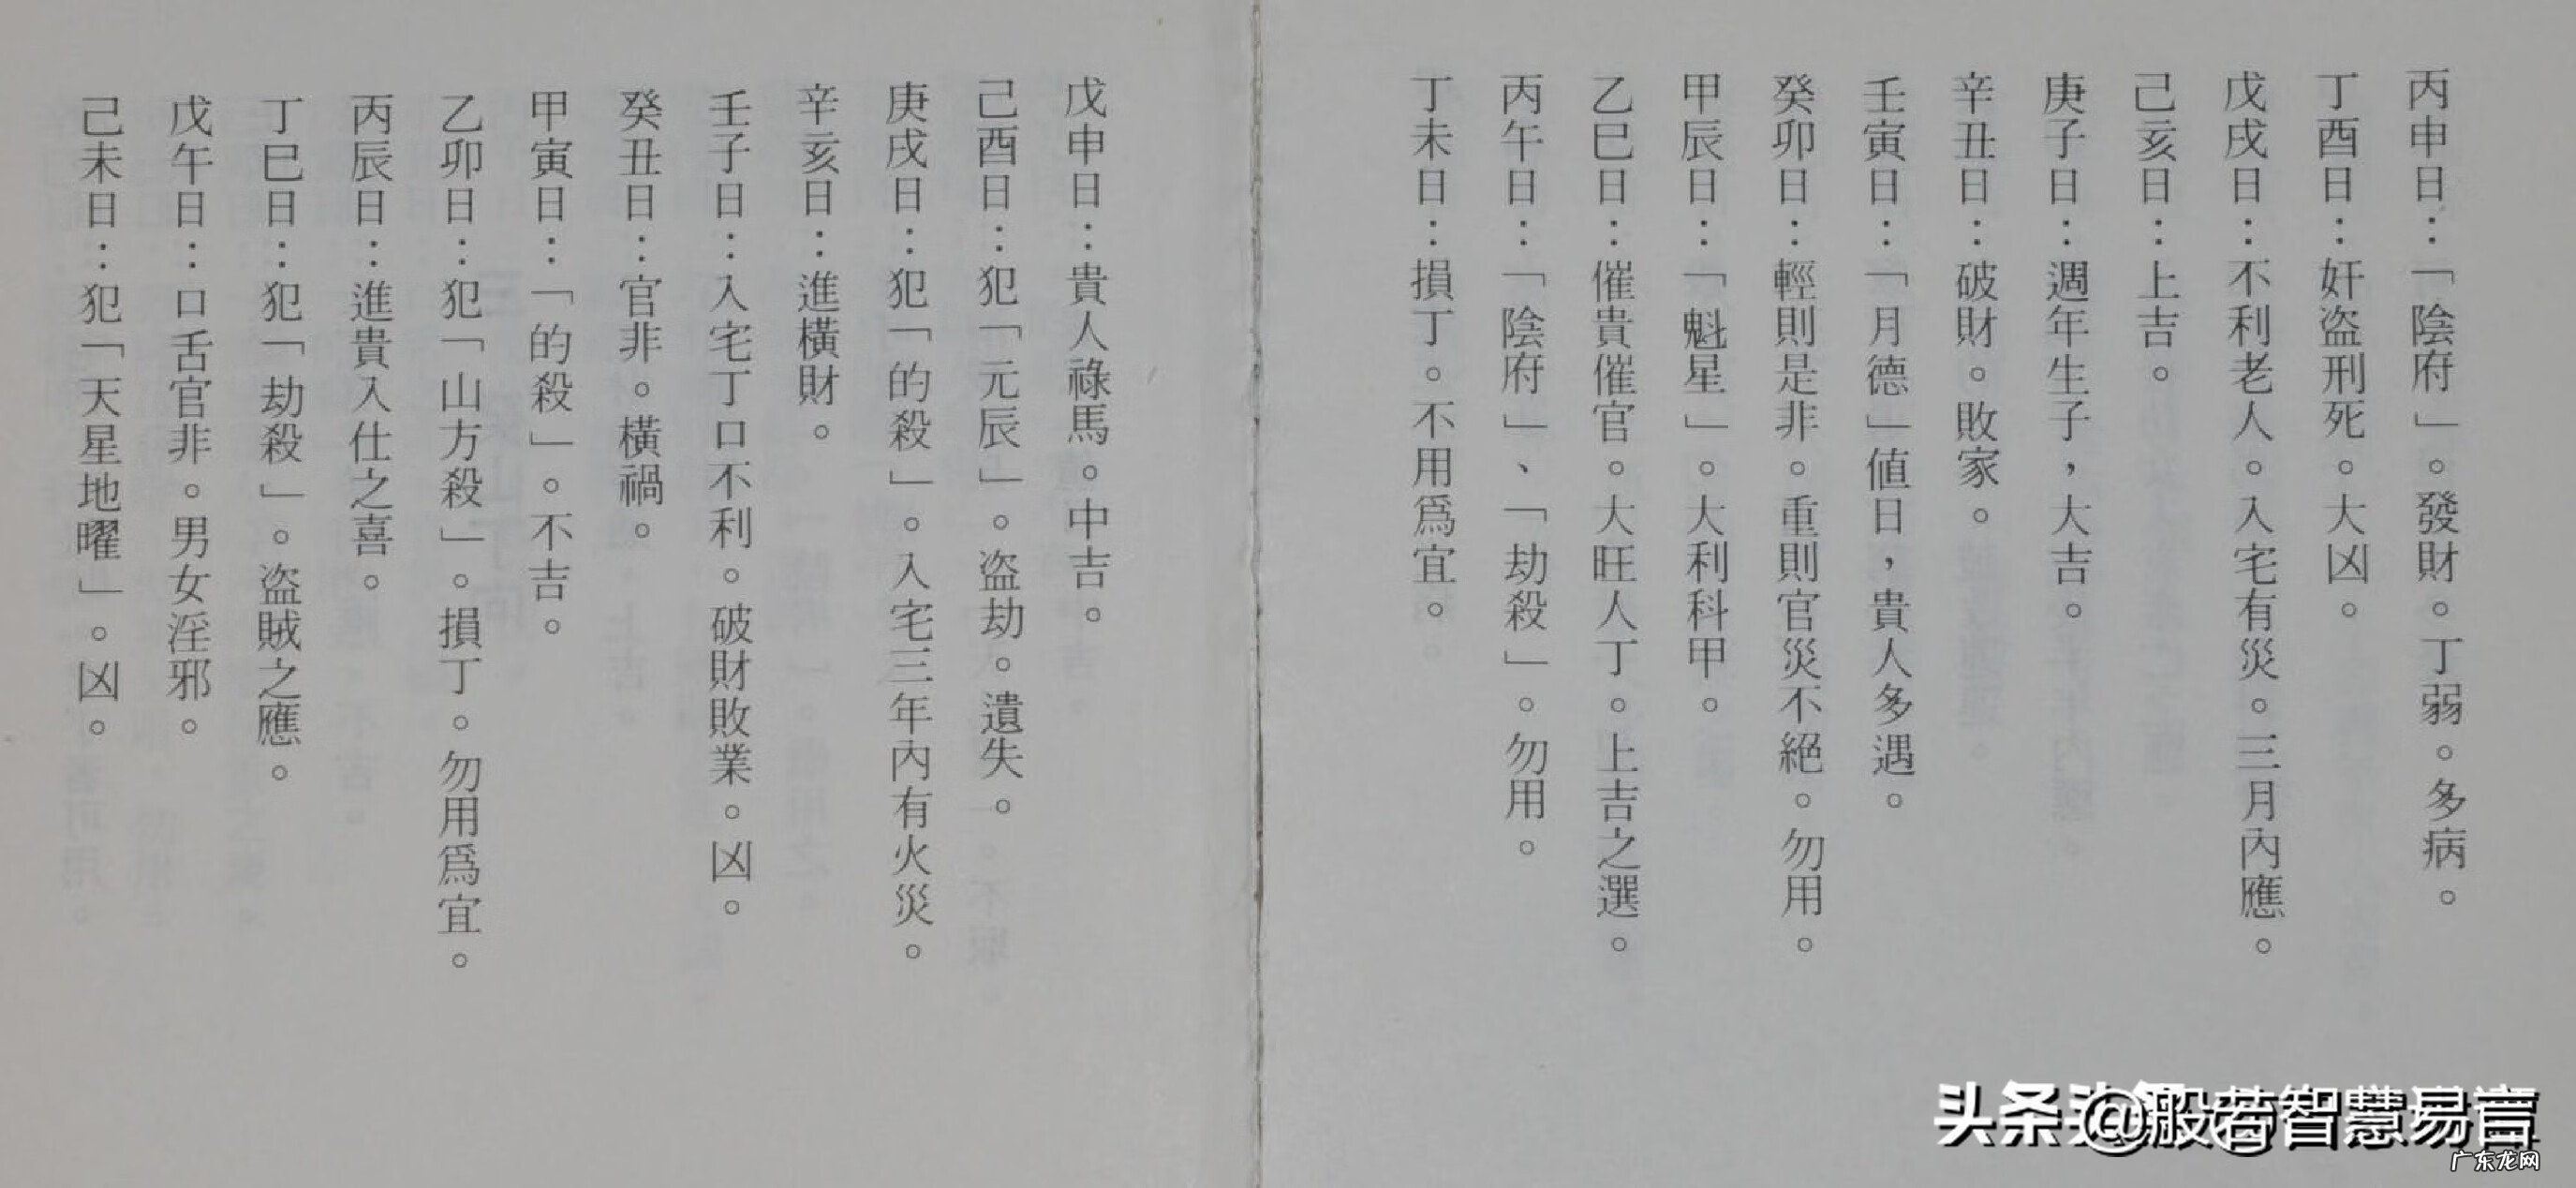 丙申日：「陰府」。發財。丁弱。多病。
丁酉日：奸盗刑死。大凶。
戊戌日：不利老人。入宅有災。三月內應。
己亥日：上吉。
庚子日：週年生子，大吉。
辛丑日：破財。敗家。
壬寅日：「月德」值日，貴人多遇。
癸卯日：輕則是非。重則官災不絕。勿用。
甲辰日：「魁星」。大利科甲。
乙巳日：催貴催官。大旺人丁。上吉之選。
丙午日：「陰府」、「劫殺」。勿用。
丁未日：損丁。不用爲宜。
戊申日：貴人祿馬。中吉。
己酉日：犯「元辰」。盗劫。遺失。
庚戌日：犯「的殺」。入宅三年內有火災。
辛亥日：進橫財。
壬子日：入宅丁口不利。破財敗業。凶。
癸丑日：官非。橫禍。
甲寅日：「的殺」。不吉。
乙卯日：犯「山方殺」。損丁。勿用爲宜。
丙辰日：進貴入仕之喜。
丁巳日：犯「劫殺」。盗賊之應。
戊午日：口舌官非。男女淫邪。
己未日：犯「天星地曜」。凶。
头条 @般若智慧易言
广东龙网